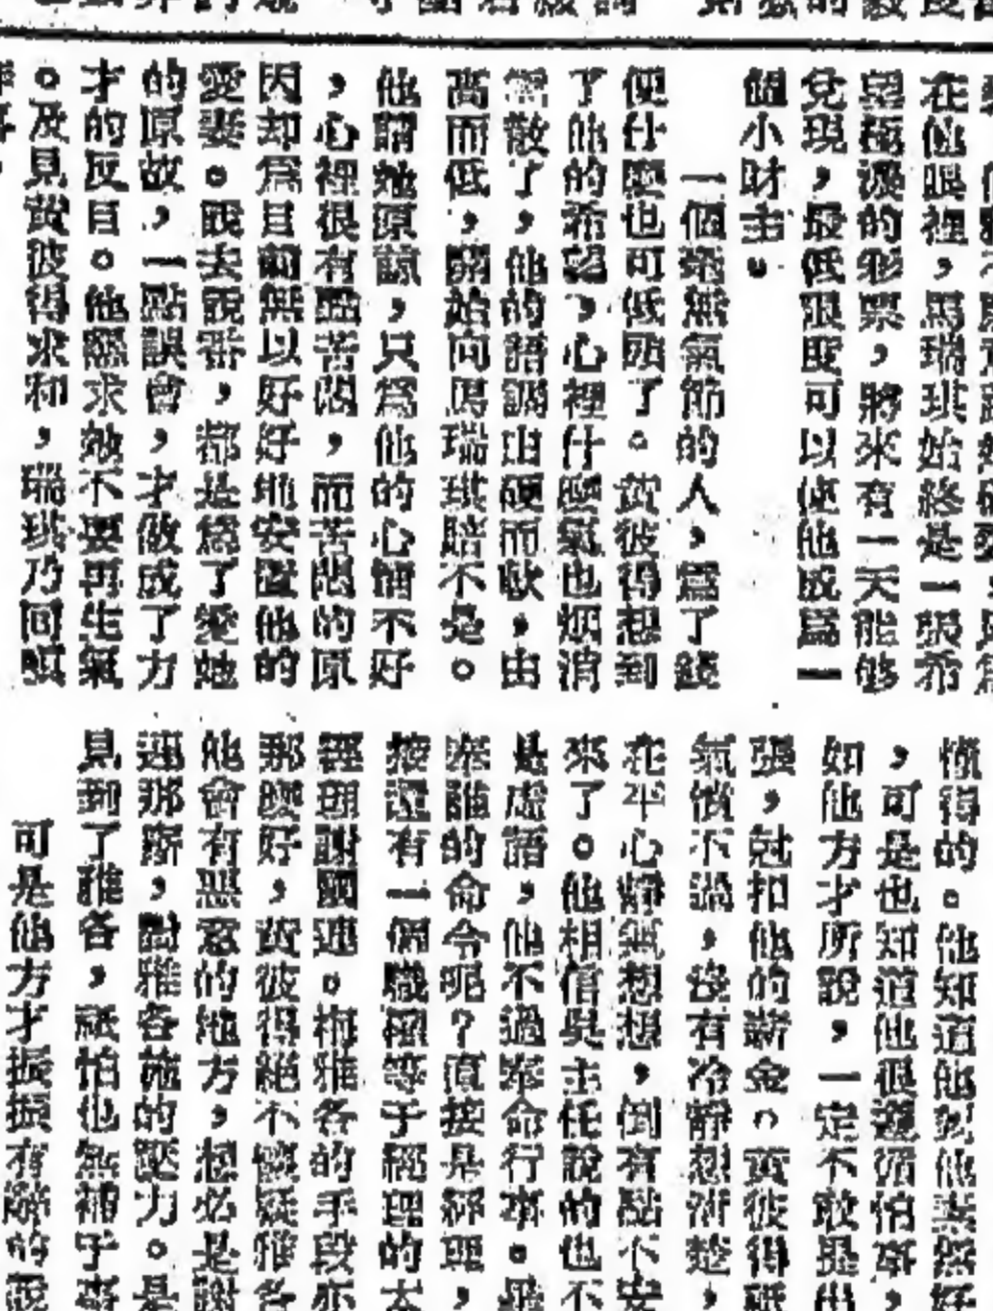 在他眼裡,馬瑞琪始終是一張希
望極濃的彩票,將來有一天能够
兌現,最低限度可以使他成爲一
個小財主。
一個窮無氣節的人,爲了錢
便什麼也可低頭了。黃彼得想到
了他的希望,心裡什麼氣也烟消
散了,他的語調由硬而軟,由
高而低,開始向馬瑞琪賠不是。
他請她原諒,只爲他的心情不好
,心裡很有點苦悶,而苦悶的原
因却爲目前無以好好地安置他的
愛妻。說去說番,都是爲了愛她
的原故,一點誤會,才做成了方
才的反目。他懇求她不要再生氣
。及見黃彼得求和,瑞琪乃回嗔
得的。他知道他
,可是也知道他很怕事,
如他方才所說,一定不敢
張,尅扣他的薪金。黃彼得祇
氣憤不過,沒有冷靜想淸楚,
在平心靜氣想想,倒有點不安
來了。他相信吳主任說的也不
是虛語,他不過奉命行事。
奉誰的命令呢?直接是經理,
按還有一個職權等于經理的太
經理謝國進。柯雅各的手段亦
那麼好,黃彼得絕不懷疑雅各
他會有惡意的地方,想必是謝
進那廝,對雅各施的壓力。是
見到了雅各,祇怕也無補于事
可是他方才振振有辭的說